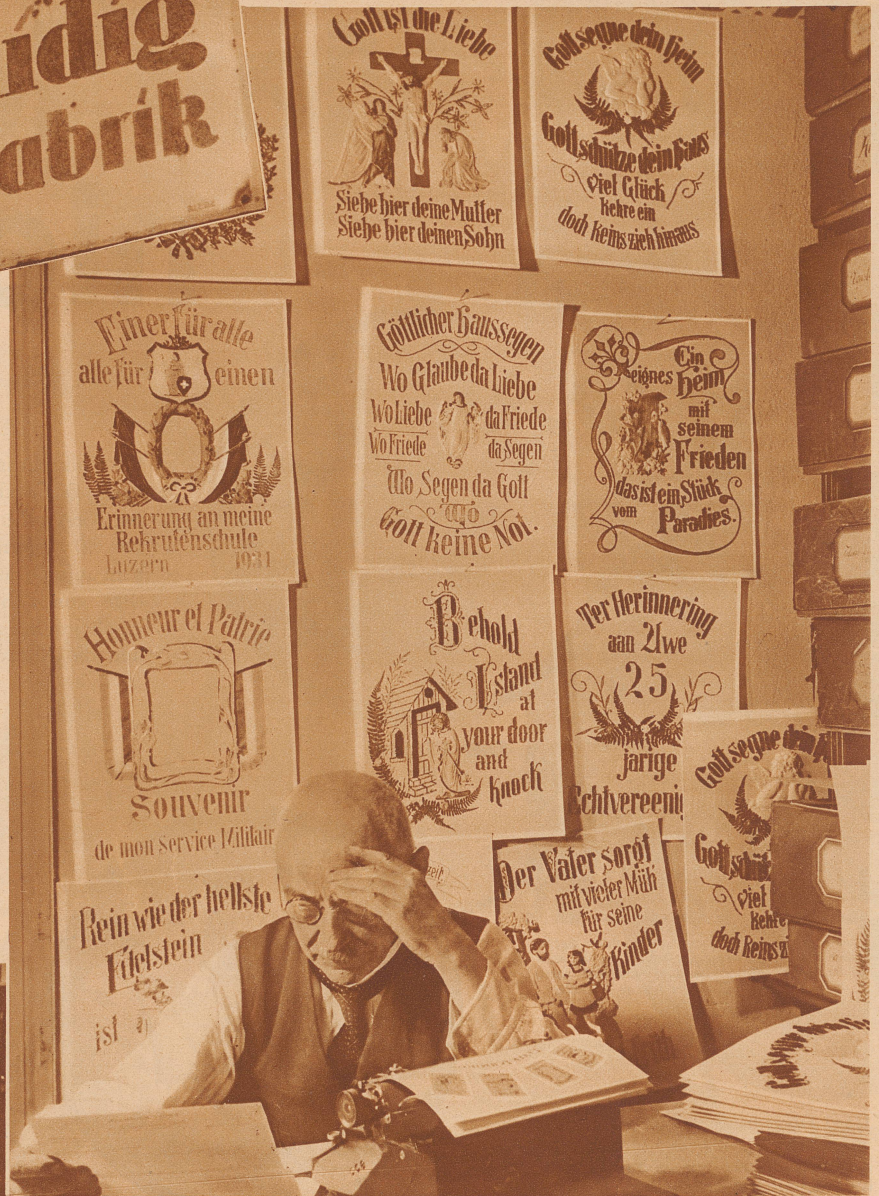 abrik
Gott ist die Liebe
Siehe hier deine Mutter
Siehe hier deinen Sohn
Gott segne dein Heim
Gott schütze dein Haus
viel Glück
kehre ein
doch keins zieh hinaus
Einer für alle
alle für einen
Erinnerung an meine
Rekrutenschule
Luzern 1931
Göttlicher Haussegen
Wo Glaube da Liebe
Wo Liebe da Friede
Wo Friede da Segen
Wo Segen da Gott
Wo
Gott keine Not.
Ein
eignes Heim
mit
seinem
Frieden
das ist ein Stück
vom Paradies.
Honneur et Patrie
Souvenir
de mon Service Militair
Behold
I stand
at
your door
and
knock
Ter Herinnering
aan Uwe
25
jarige
Echtvereenig
Gott segne dein
Gott schüt
viel
kehre
doch keins z
Rein wie der hellste
Edelstein
ist
Der Vater sorgt
mit vieler Müh
für seine
Kinder